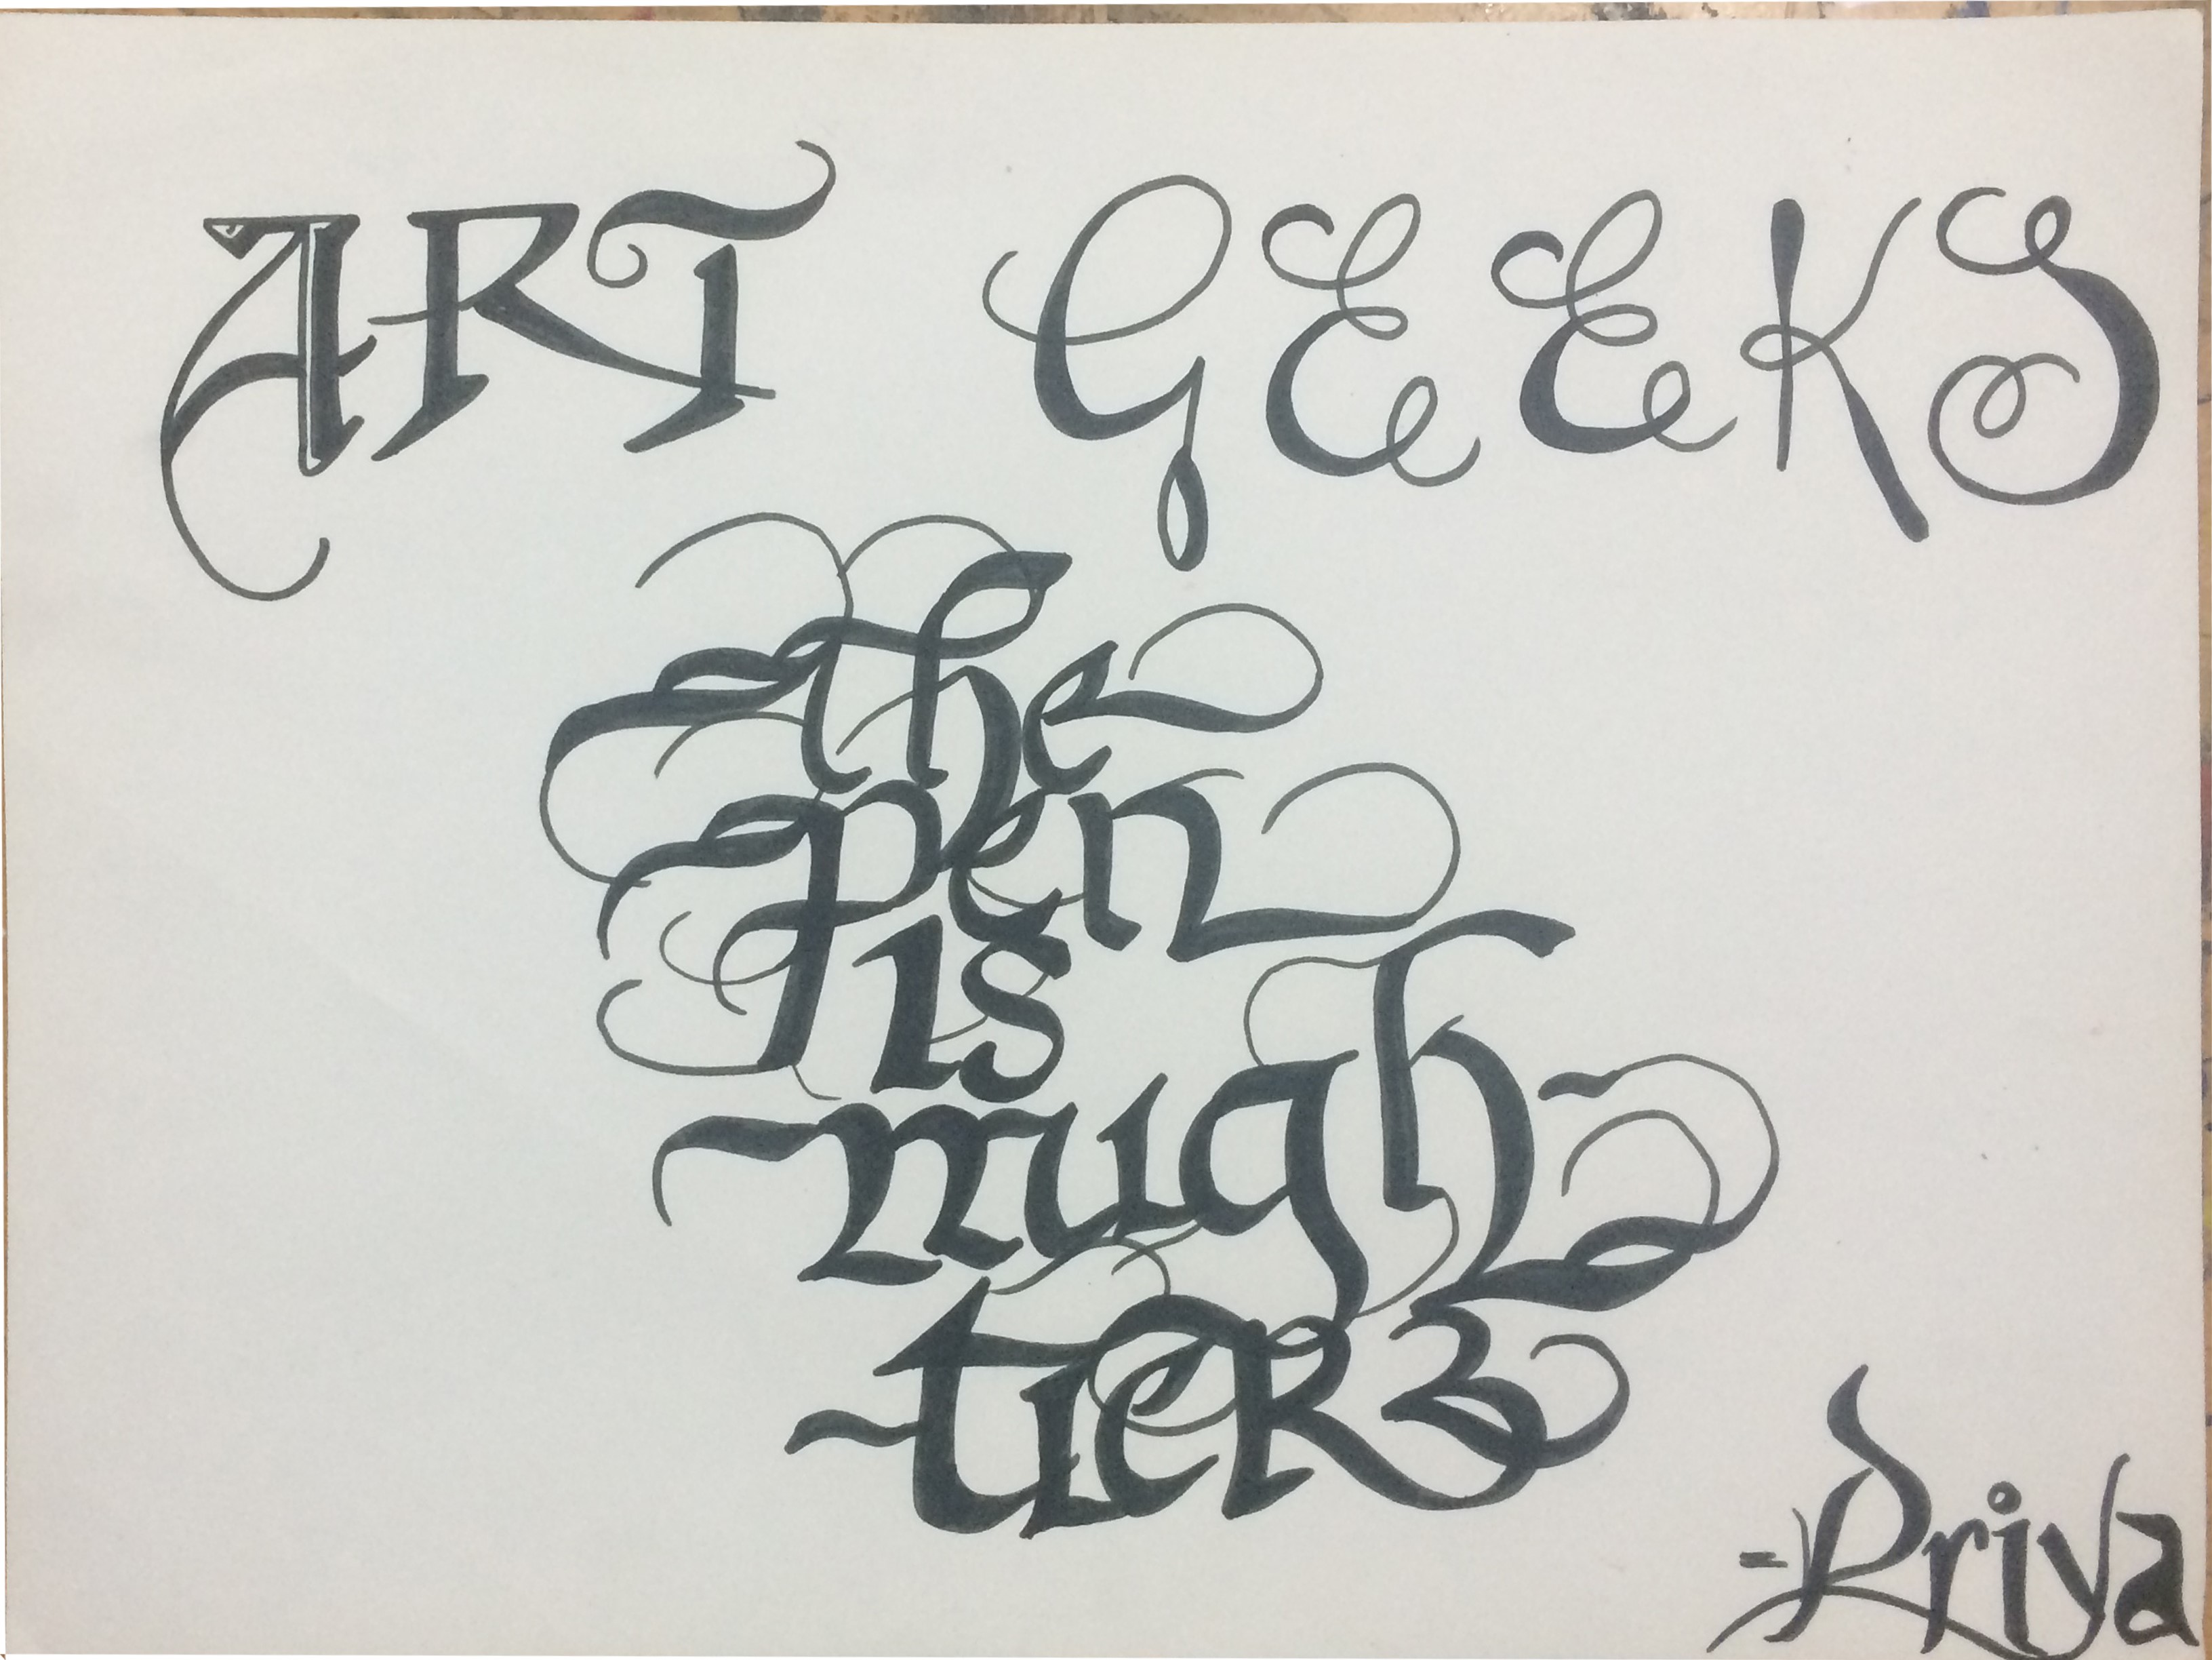 ART GEEKS
The
Pen
is
migh
tieR
-Priya